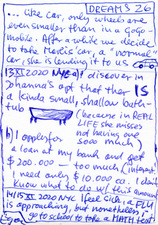 DREAMS 26
... like car, only wheels are
even smaller than in a GoGo-
mobile. After a while we decide
to take Merlic's car, a "normal"
car, she is lending it to us
13 XI 2020 NYC a) I discover in
Johanna's apt that ther IS
a kinda small, shallow bath-
tub
(because in REAL
LIFE she misses
not having one
sooo much)
b) I apply for
a loan at my bank and get
$200.000 — too much,
I need only $10.000 oo. I don't
know what to do w/ this amount
14/15 XI 2020 NYC I feel sick, a FLU
is approaching, but nonetheless I
go to school to take a MATH test